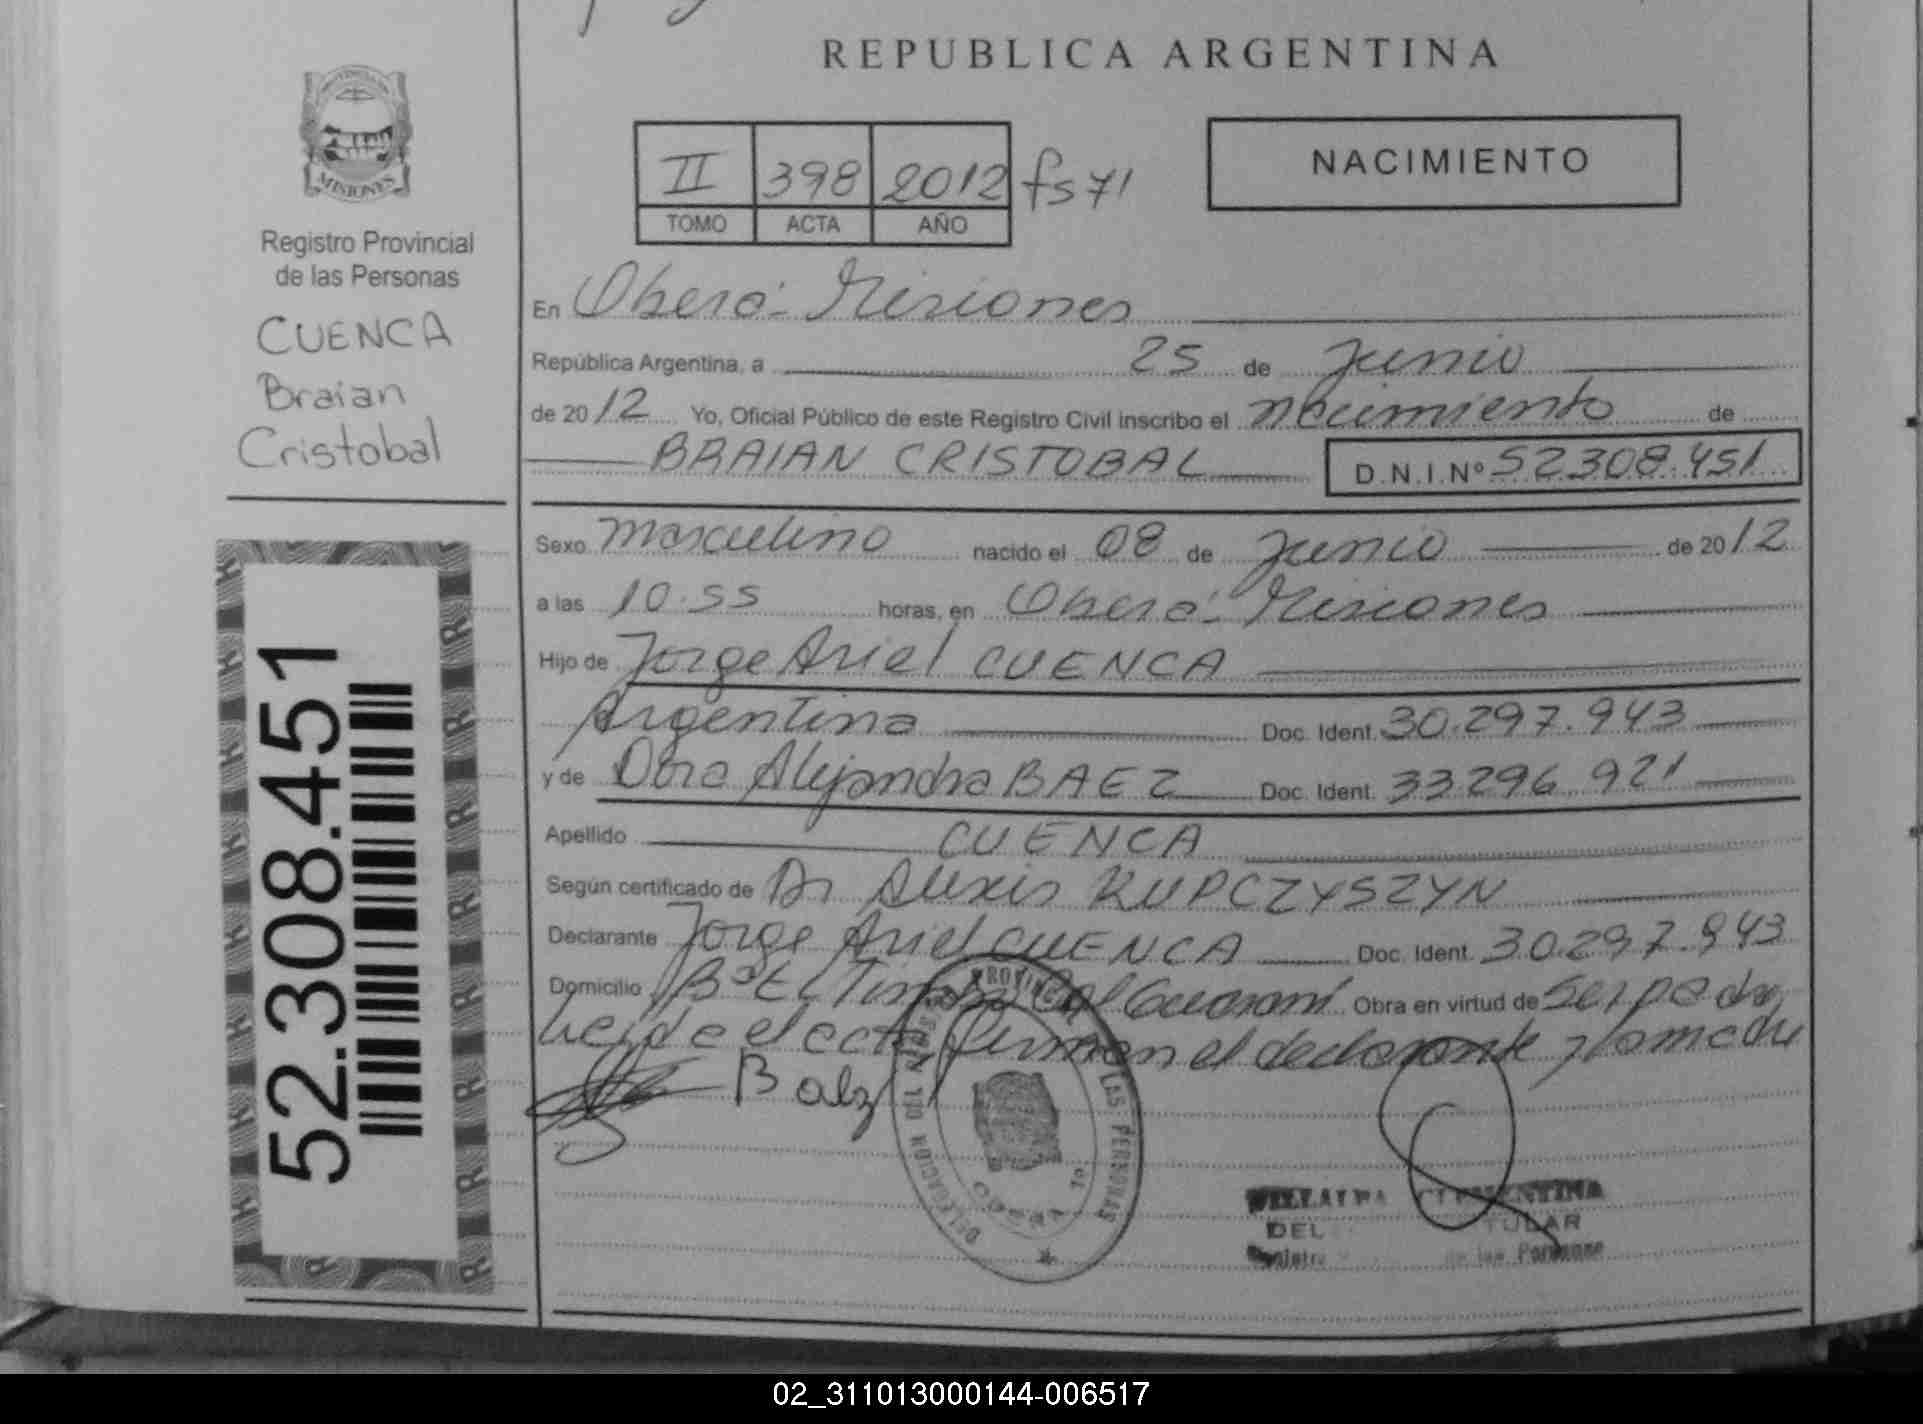 REPUBLICA ARGENTINA
PROVINCIA DE
MISIONES
Registro Provincial
de las Personas
CUENCA
Braian
Cristobal
52.308.451
II 398 2012 fs 71
TOMO ACTA AÑO
NACIMIENTO
En Oberá - Misiones
República Argentina, a 25 de Junio
de 2012 Yo, Oficial Público de este Registro Civil inscribo el nacimiento de
BRAIAN CRISTOBAL D.N.I.Nº 52.308.451
Sexo masculino nacido el 08 de Junio de 2012
a las 10.55 horas, en Oberá - Misiones
Hijo de Jorge Ariel CUENCA
Argentina Doc. Ident. 30.297.943
y de Alejandra BAEZ Doc. Ident. 33296.921
Apellido CUENCA
Según certificado de Dr Alexis KUPCZYSZYN
Declarante Jorge Ariel CUENCA Doc. Ident. 30.297.943
Domicilio Bº El Guaraní Obra en virtud de ser padre
Leída el acta, firman el declarante y la madre
DELEGACION REGISTRO PROVINCIAL DE LAS PERSONAS
OBERA
VILLALBA CLEMENTINA
DEL TULAR
Registro de las Personas
02_311013000144-006517